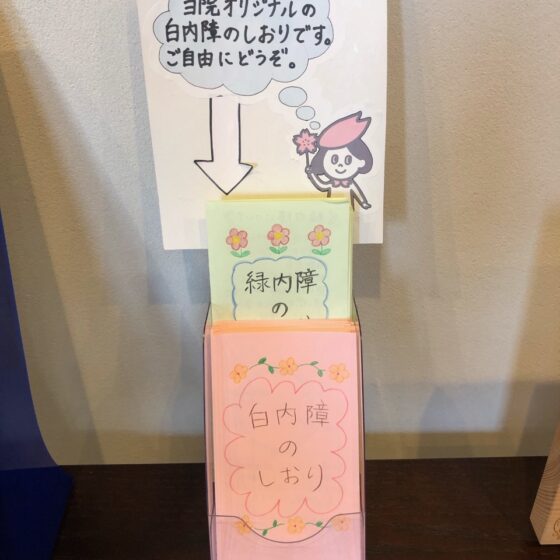 当院オリジナルの
白内障のしおりです。
ご自由にどうぞ。
緑内障
の
白内障
の
しおり